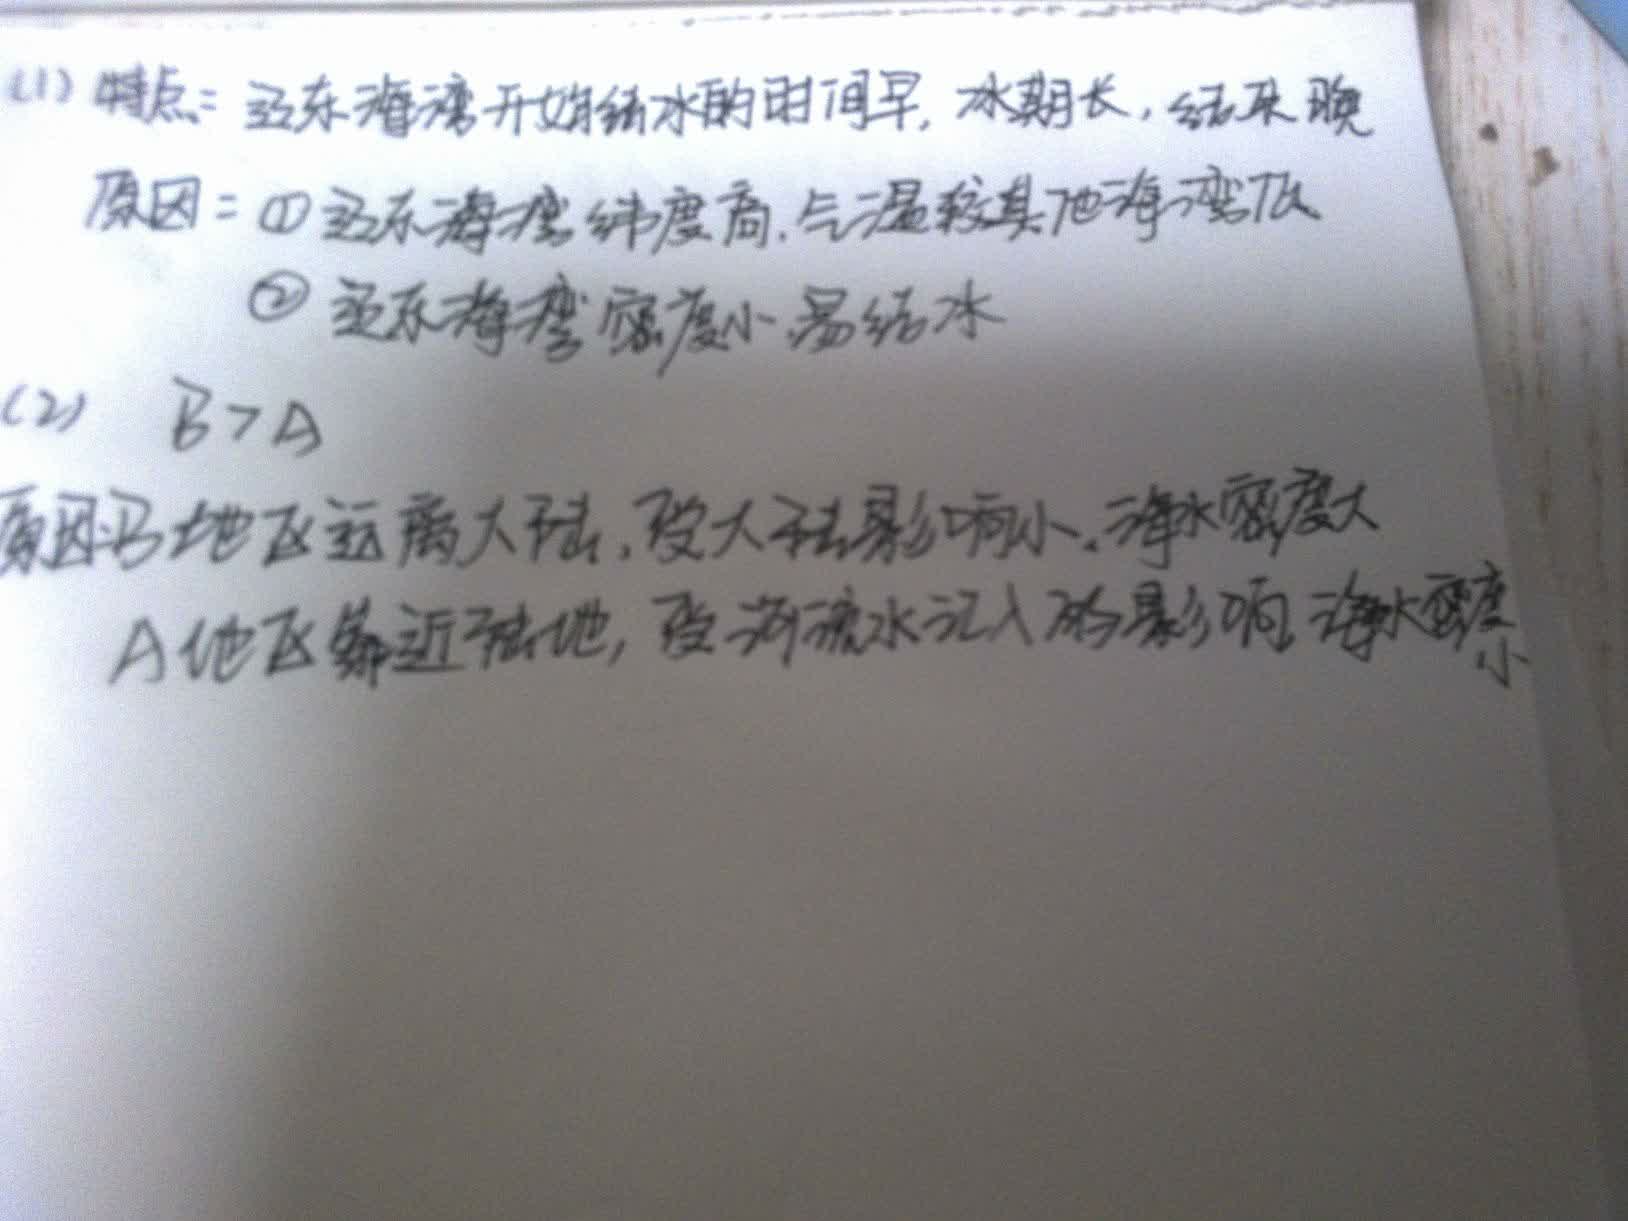 (1) 特点: 辽东海湾开始结冰的时间早, 冰期长, 结束晚
原因: ①辽东海湾纬度高, 气温较其他海湾低
② 辽东海湾密度小, 易结冰
(2) B>A
原因:B地区远离大陆, 受大陆影响小, 海水密度大
A地区靠近陆地, 受河流水汇入的影响, 海水密度
小